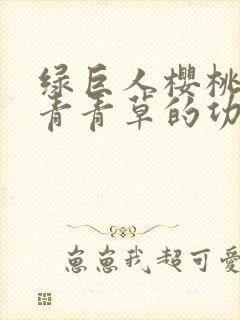 绿巨人櫻桃
青青草的功
崽崽我超可愛